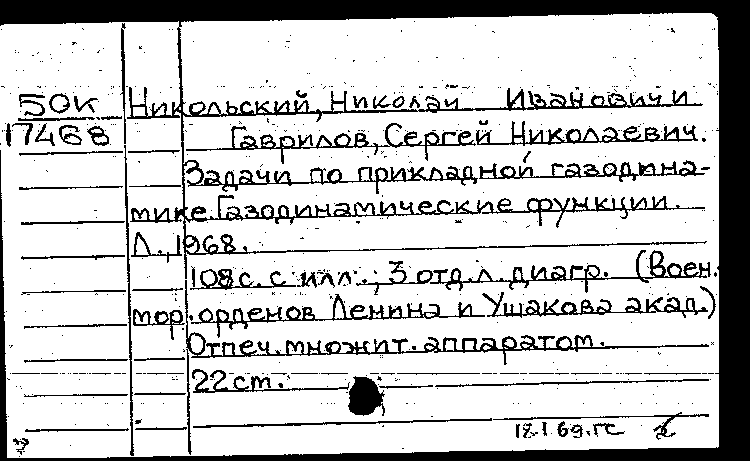 50к Никольский, Николай Иванович и
17468 Гаврилов, Сергей Николаевич.
Задачи по прикладной газодина-
мике. Газодинамические функции.
Л., 1968.
108 с. с илл.; 3 отд. л. диагр. (Воен.
мор. орденов Ленина и Ушакова акад.)
Отпеч. множит. аппаратом.
22 см.
18.I.69.гс